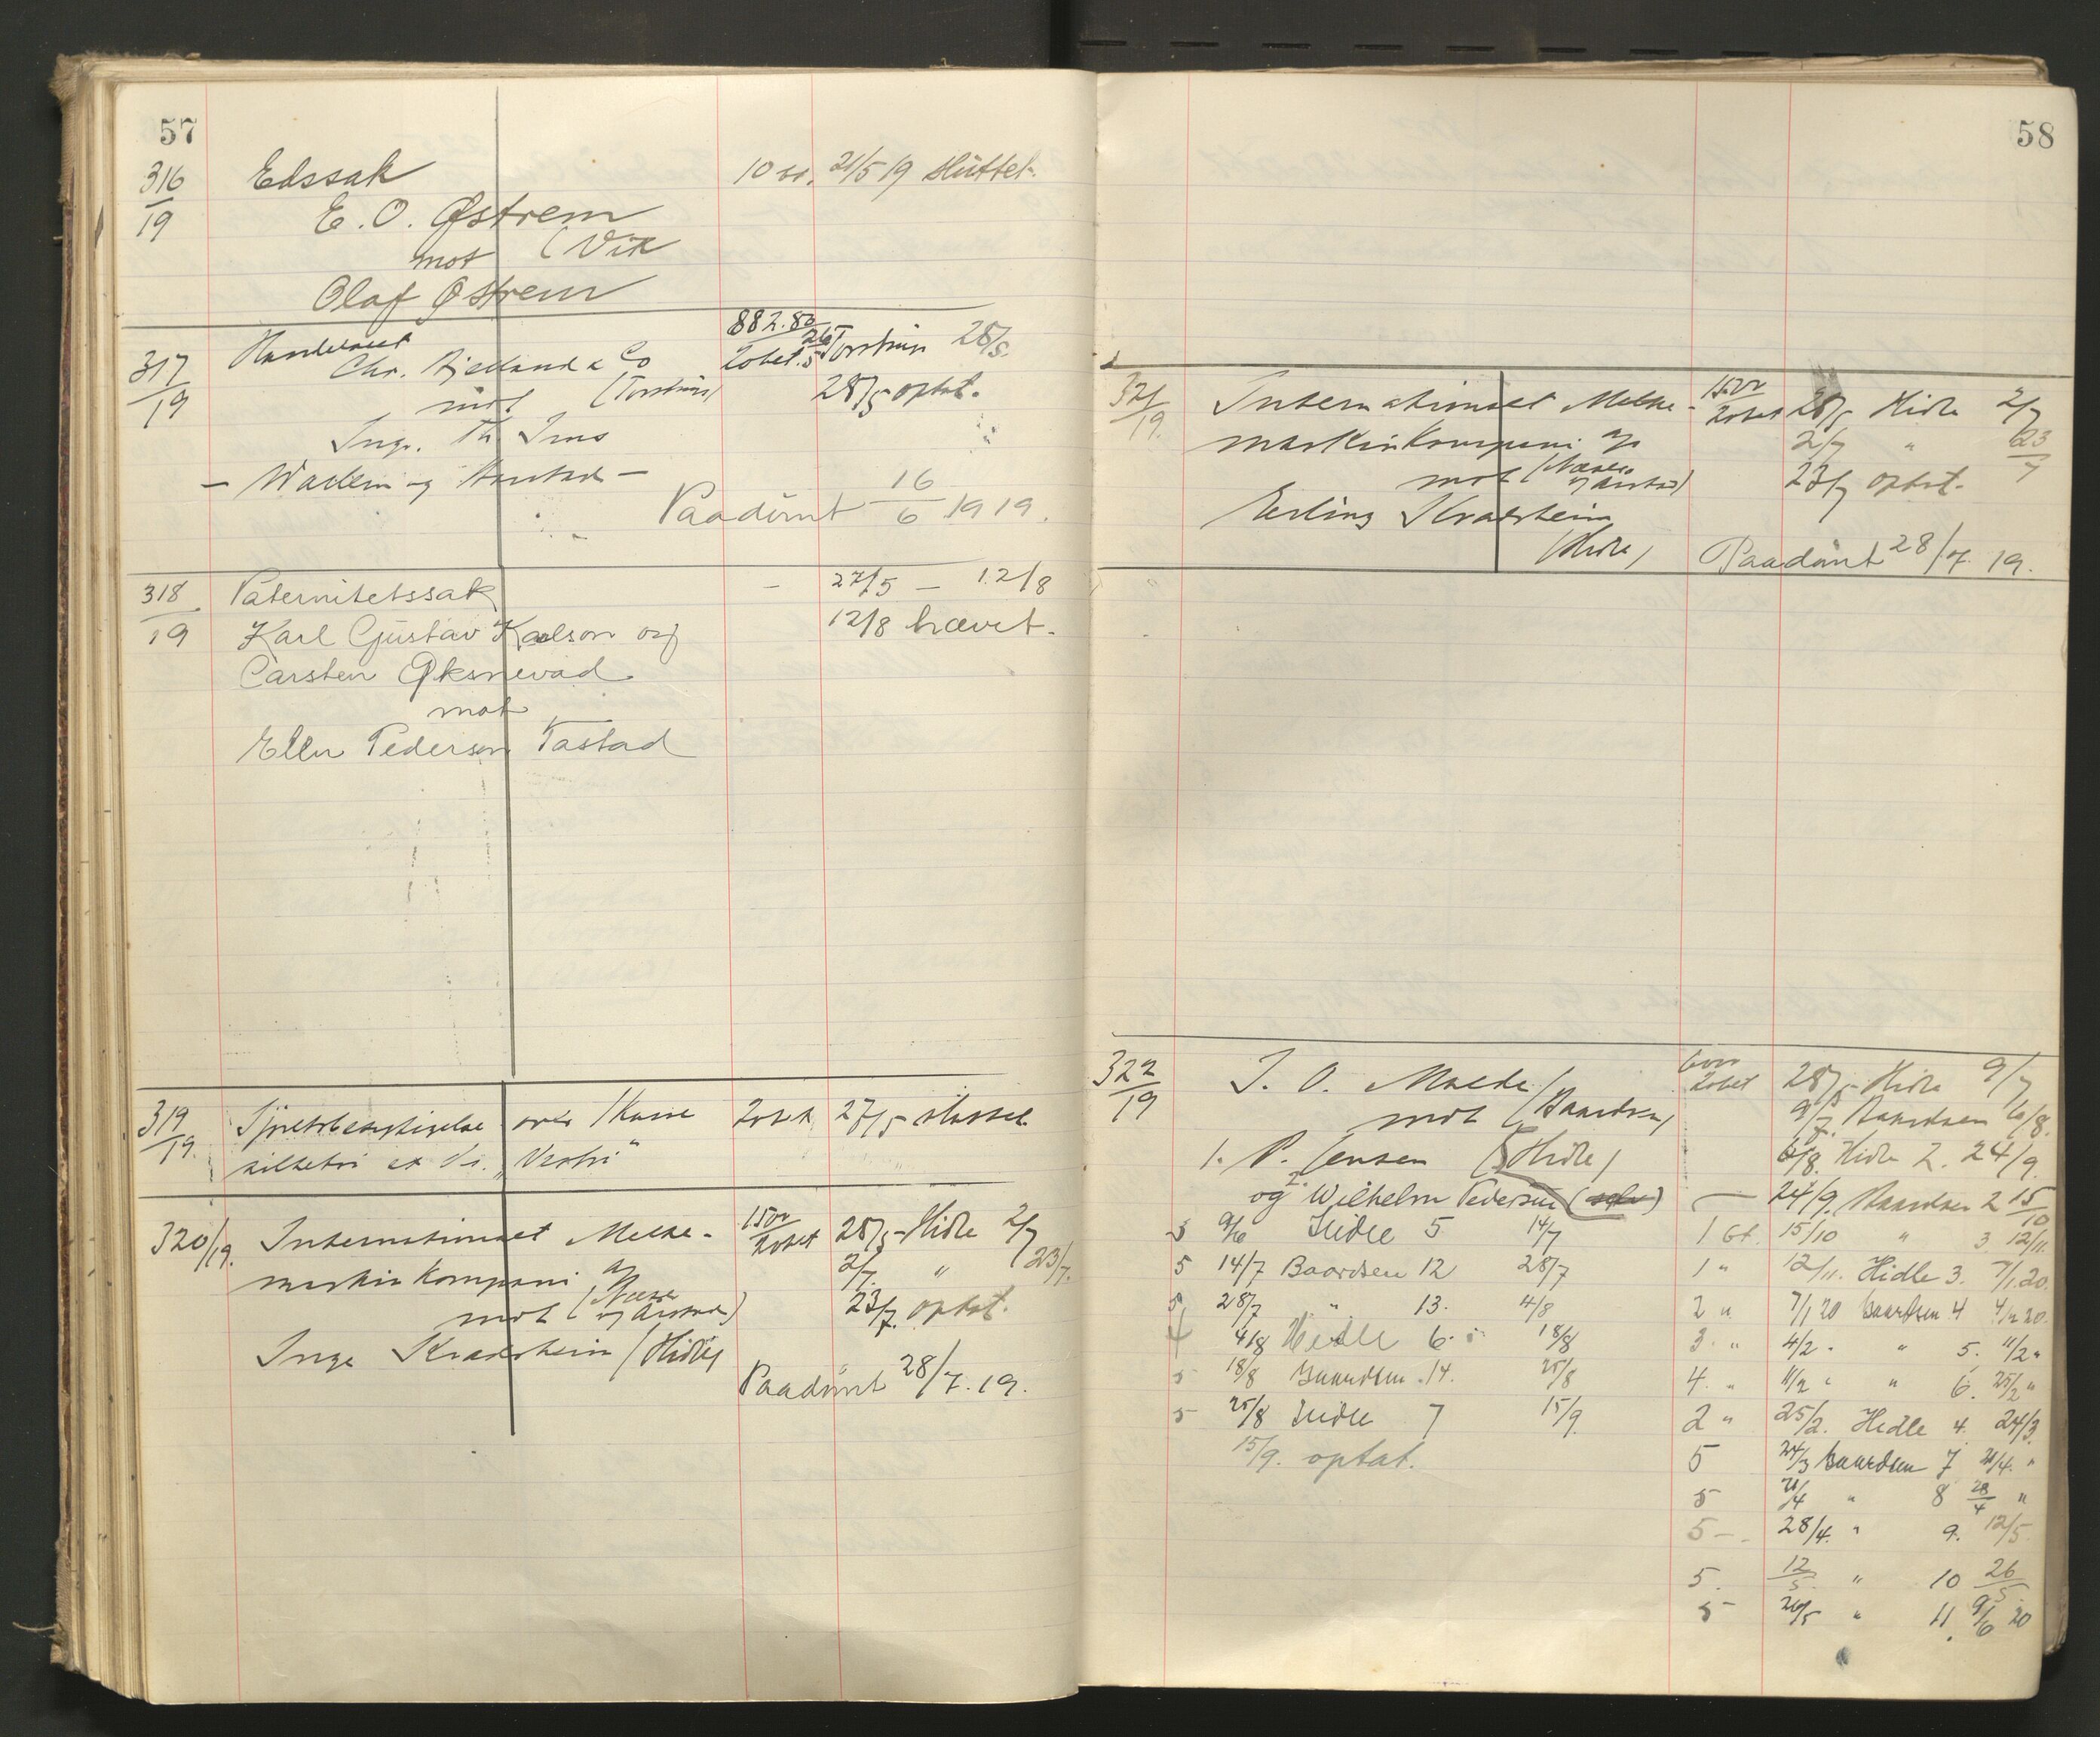 57
316/19 Edssak 10 kr. 21/5 19 sluttet.
E. O. Østrem
mot (Vik
Olaf Østrem
317/19 Handelsret 882.80
Chr. Bjelland & Co 2obet. 26/5 Torstein 28/5.
mot (Torstein) 28/5 optat.
Inge. Th. Ims
— Wadem og Aarstad —
Paadömt 16/6 1919.
318/19 Paternitetssak — 27/5 — 12/8
Karl Gustav Karlson og 12/8 hævet.
Carsten Øksnevad
mot
Ellen Pederson Tastad
319/19 Sjøretsbesigtigelse over 27/5 sluttet
ex "Vestri"
320/19. Internationalt Melke- 1500 28/5 Hidle 2/7
maskin Kompani a/s 2/7. " 23/7.
mot (Næsse og Aarstad) 23/7. optat.
Inge Kradsheim (Hidle)
Paadömt 28/7. 19.
58
321/19. Internationalt Melke- 1500 28/5 Hidle 2/7
maskin Kompani a/s 2/7 " 23/7
mot (Næsse og Aarstad) 23/7 optat.
Erling Kradsheim
(Hidle) Paadömt 28/7. 19.
322/19 T. O. Malde 28/5 Hidle 9/7
mot (Baardsen) 9/7. Baardsen 6/8.
1. P. Jensen (Hidle) 6/8. Hidle 2. 24/9.
og 2. Wilhelm Pedersen (selv) — 24/9. Baardsen 2 15/10
5 9/6 Hidle 5 14/7 1 Gt. 15/10 " 3 12/11.
5 14/7 Baardsen 12 28/7 1 " 12/11. Hidle 3. 7/1.20.
5 28/7 " 13. 4/8 2 " 7/1 20 Baardsen 4 4/2 20.
4 4/8 Hidle 6. 18/8 3. " 4/2 " " 5. 11/2 "
5 18/8 Baardsen 14. 25/8 4. " 11/2 " " 6. 25/2 "
5 25/8 Hidle 7 15/9. 2 " 25/2. Hidle 4. 24/3.
15/9. optat. 5 24/3 Baardsen 7 21/4. "
5 21/4 " 8 28/4 "
5 — 28/4. " 9. 12/5.
5. 12/5. " 10 26/5.
5 26/5 " 11. 9/6 20